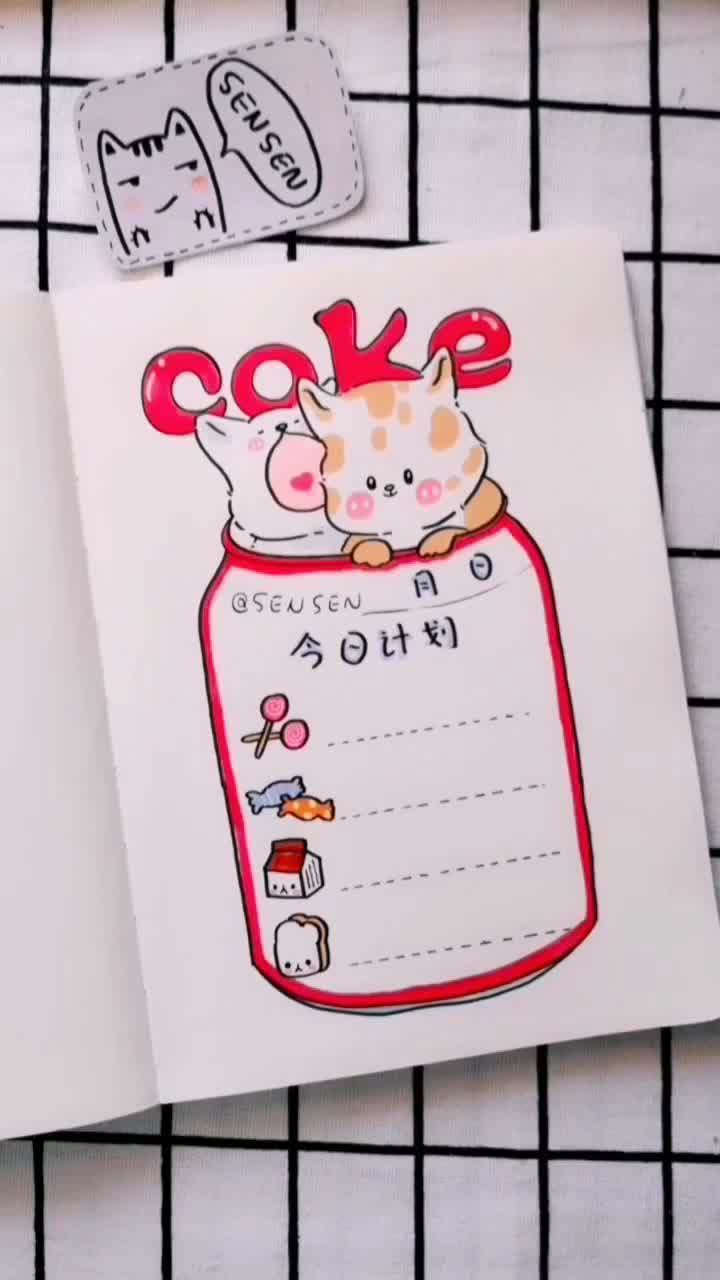 SENSEN
coke
月 日
@SENSEN
今日计划